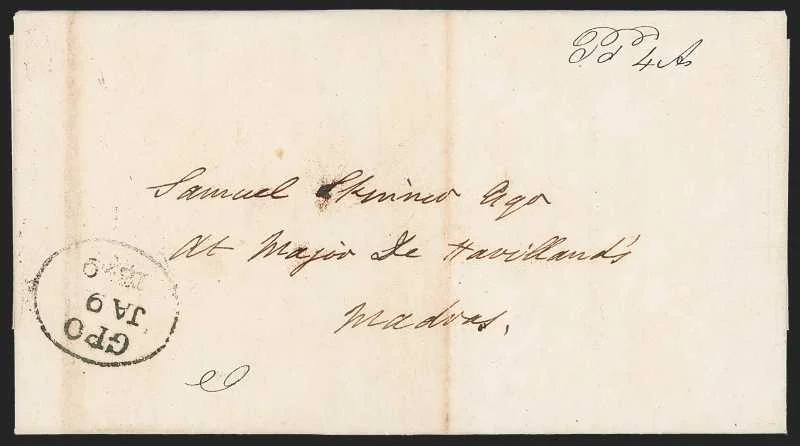 Pd 4 As
Samuel Skinner Esqr
At Major De Havilland's
Madras.
GPO
JA 9